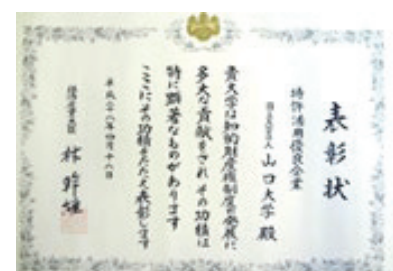 表彰状
特許活用優良企業
国立大学法人 山口大学 殿
貴大学は知的財産権制度の発展に
多大な貢献をされその功績は
特に顕著なものがあります
ここにその功績をたたえ表彰します
平成二八年四月十八日
経済産業大臣 林 幹雄